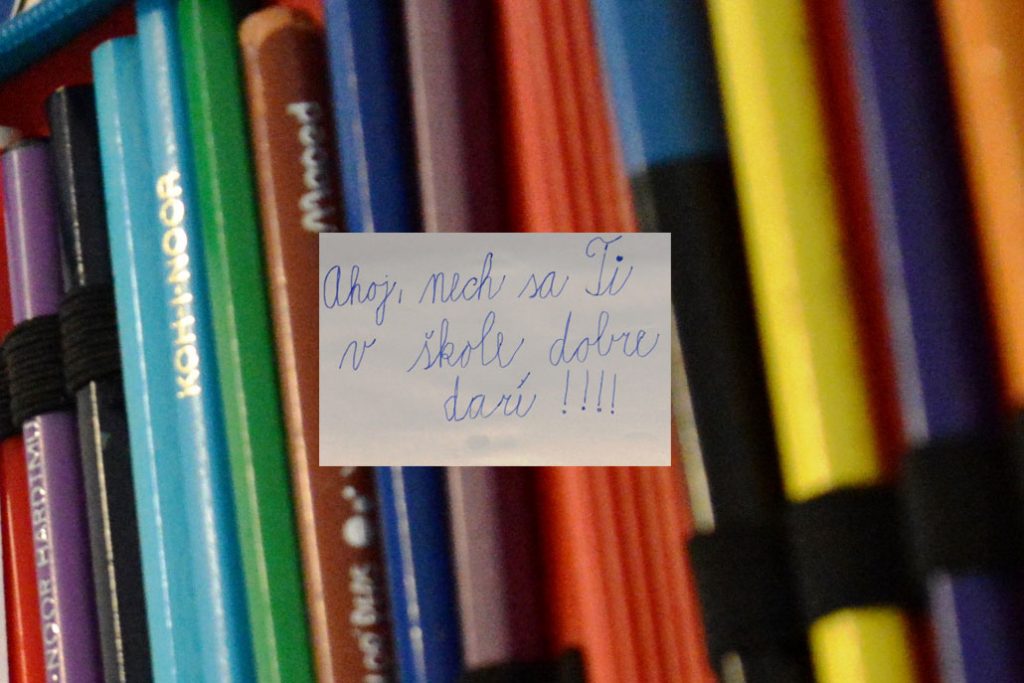 Ahoj, nech sa Ti
v škole dobre
darí !!!!
KOH-I-NOOR
Mondeluz
NOOR HARDTMUTH